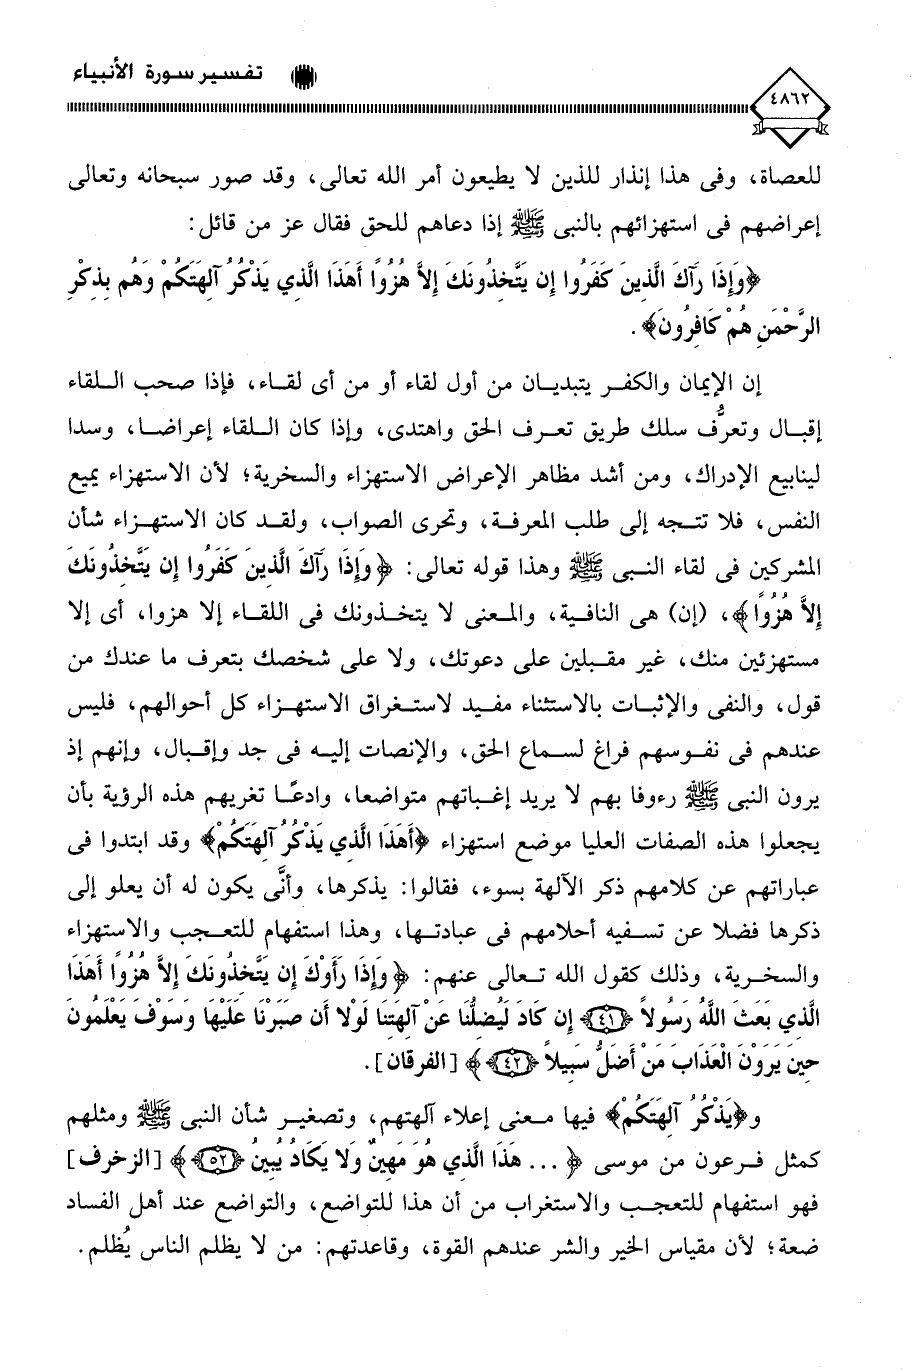 تفسير سورة الأنبياء
٤٨٦٢
للعصاة، وفى هذا إنذار للذين لا يطيعون أمر الله تعالى، وقد صور سبحانه وتعالى
إعراضهم فى استهزائهم بالنبى ﷺ إذا دعاهم للحق فقال عز من قائل:
﴿وَإِذَا رَآكَ الَّذِينَ كَفَرُوا إِن يَتَّخِذُونَكَ إِلاَّ هُزُوًا أَهَذَا الَّذِي يَذْكُرُ آلِهَتَكُمْ وَهُم بِذِكْرِ
الرَّحْمَنِ هُمْ كَافِرُونَ﴾.
إن الإيمان والكفر يتبديان من أول لقاء أو من أى لقاء، فإذا صحب اللقاء
إقبال وتعرُّف سلك طريق تعرف الحق واهتدى، وإذا كان اللقاء إعراضا، وسدا
لينابيع الإدراك، ومن أشد مظاهر الإعراض الاستهزاء والسخرية؛ لأن الاستهزاء يميع
النفس، فلا تتجه إلى طلب المعرفة، وتحرى الصواب، ولقد كان الاستهزاء شأن
المشركين فى لقاء النبى ﷺ وهذا قوله تعالى: ﴿وَإِذَا رَآكَ الَّذِينَ كَفَرُوا إِن يَتَّخِذُونَكَ
إِلاَّ هُزُوًا﴾، (إن) هى النافية، والمعنى لا يتخذونك فى اللقاء إلا هزوا، أى إلا
مستهزئين منك، غير مقبلين على دعوتك، ولا على شخصك بتعرف ما عندك من
قول، والنفى والإثبات بالاستثناء مفيد لاستغراق الاستهزاء كل أحوالهم، فليس
عندهم فى نفوسهم فراغ لسماع الحق، والإنصات إليه فى جد وإقبال، وإنهم إذ
يرون النبى ﷺ رءوفا بهم لا يريد إغباتهم متواضعا، وادعًا تغريهم هذه الرؤية بأن
يجعلوا هذه الصفات العليا موضع استهزاء ﴿أَهَذَا الَّذِي يَذْكُرُ آلِهَتَكُمْ﴾ وقد ابتدوا فى
عباراتهم عن كلامهم ذكر الآلهة بسوء، فقالوا: يذكرها، وأنَّى يكون له أن يعلو إلى
ذكرها فضلا عن تسفيه أحلامهم فى عبادتها، وهذا استفهام للتعجب والاستهزاء
والسخرية، وذلك كقول الله تعالى عنهم: ﴿وَإِذَا رَأَوْكَ إِن يَتَّخِذُونَكَ إِلاَّ هُزُوًا أَهَذَا
الَّذِي بَعَثَ اللَّهُ رَسُولاً ﴿٤١﴾ إِن كَادَ لَيُضِلُّنَا عَنْ آلِهَتِنَا لَوْلا أَن صَبَرْنَا عَلَيْهَا وَسَوْفَ يَعْلَمُونَ
حِينَ يَرَوْنَ الْعَذَابَ مَنْ أَضَلُّ سَبِيلاً ﴿٤٢﴾﴾ [الفرقان].
و﴿يَذْكُرُ آلِهَتَكُمْ﴾ فيها معنى إعلاء آلهتهم، وتصغير شأن النبى ﷺ ومثلهم
كمثل فرعون من موسى ﴿... هَذَا الَّذِي هُوَ مَهِينٌ وَلا يَكَادُ يُبِينُ ﴿٥٢﴾﴾ [الزخرف]
فهو استفهام للتعجب والاستغراب من أن هذا للتواضع، والتواضع عند أهل الفساد
ضعة؛ لأن مقياس الخير والشر عندهم القوة، وقاعدتهم: من لا يظلم الناس يُظلم.